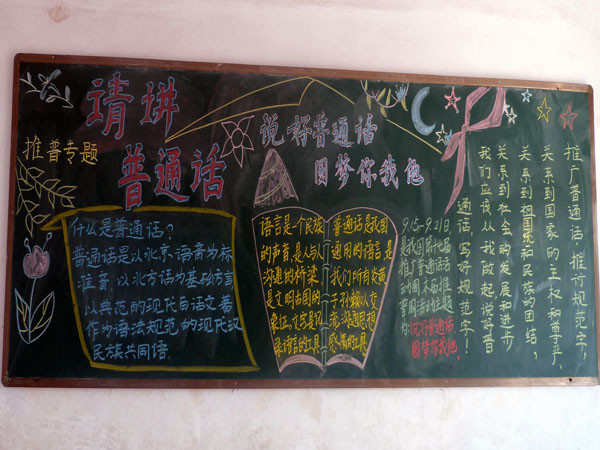 请讲
普通话
推普专题
说好普通话
圆梦你我他
什么是普通话?
普通话是以北京语音为标
准音,以北方话为基础方言
以典范的现代白话文著
作为语法规范的现代汉
民族共同语.
语言是一个民族
的声音,是人与人
沟通的桥梁
是文明古国的
象征。文字是记
录语言的工具
普通话是我国
通用的语言是
我们所有炎黄
子孙赖以交
流沟通思想
感情的工具
9.15-9.21日
是我国第七届
推广普通话
说好普通话
圆梦你我他.
推广普通话,推行规范字,
关系到国家的主权和尊严,
关系到祖国和民族的团结,
关系到社会的发展和进步
我们应该从我做起说好普
通话,写好规范字!